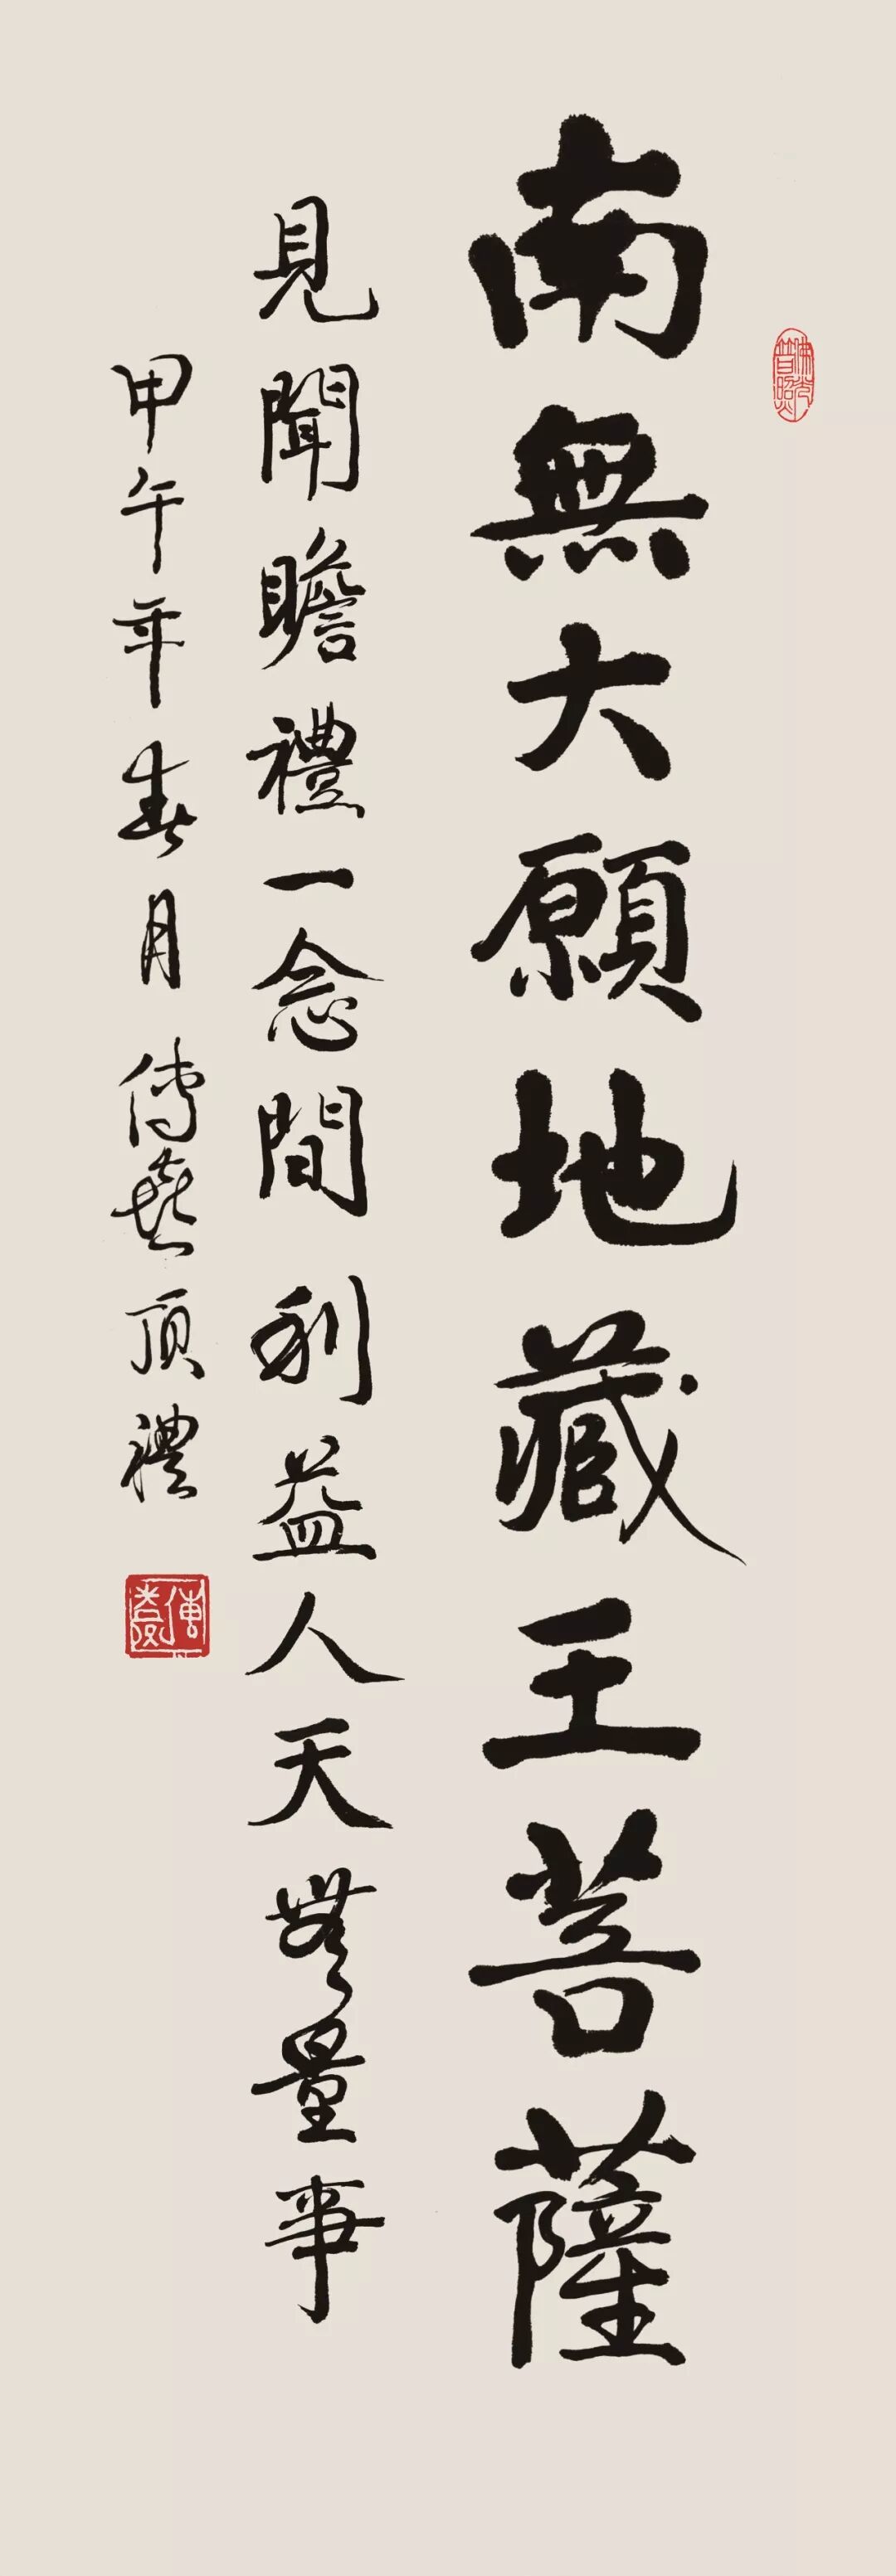 佛光普照
南無大願地藏王菩薩
見聞瞻禮一念間利益人天無量事
甲午年春月傳喜頂禮
傳喜